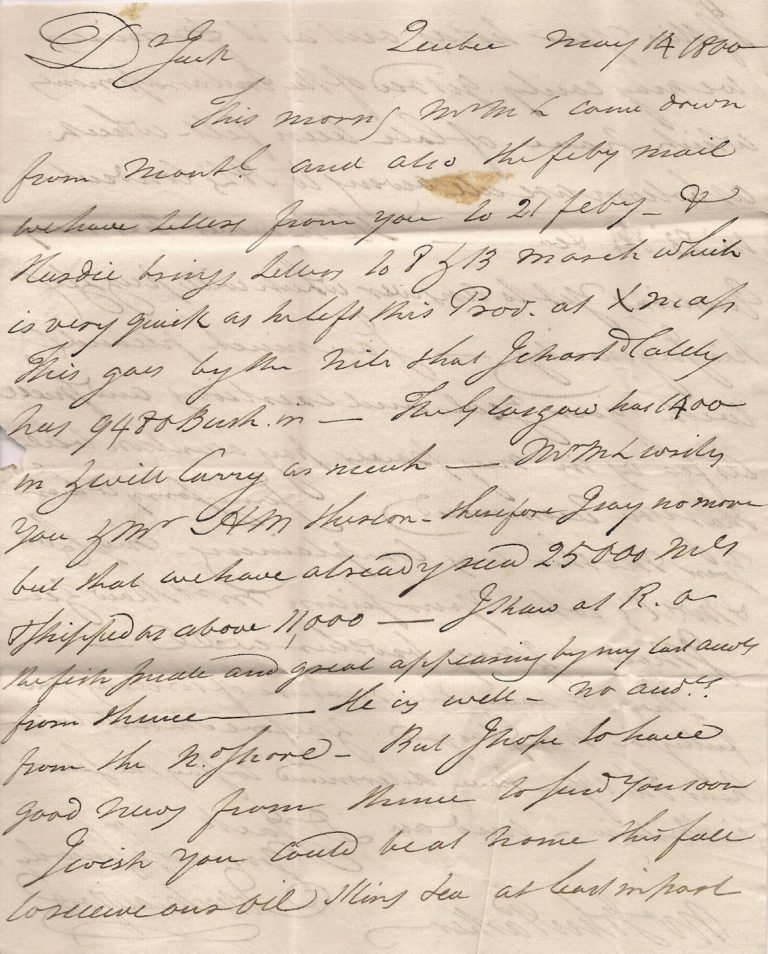 Dr Jack Quebec May 14 1800
This morng Mr ML came down
from Montl. and also the feby mail
we have Letters from you to 21 feby - &
brings Letters to 8 & 13 march which
is very quick as he left this Prov. at Xmass
This goes by the Nile that
has 9480 Bush. in — The Glasgow has 1400
in & will Carry as much — Mr ML writes
You & Mr HM thereon - therefore I say no more
but that we have already recd 25000 Mts
& shipped as above 11,000 — at R. a
the fish and great appearing by my last accts
from thence — He is well - no accts.
from the No. Shore - But I hope to have
good news from thence to send You soon
I wish you could be at home this fall
to receive our Oil Skins &ca at least in part